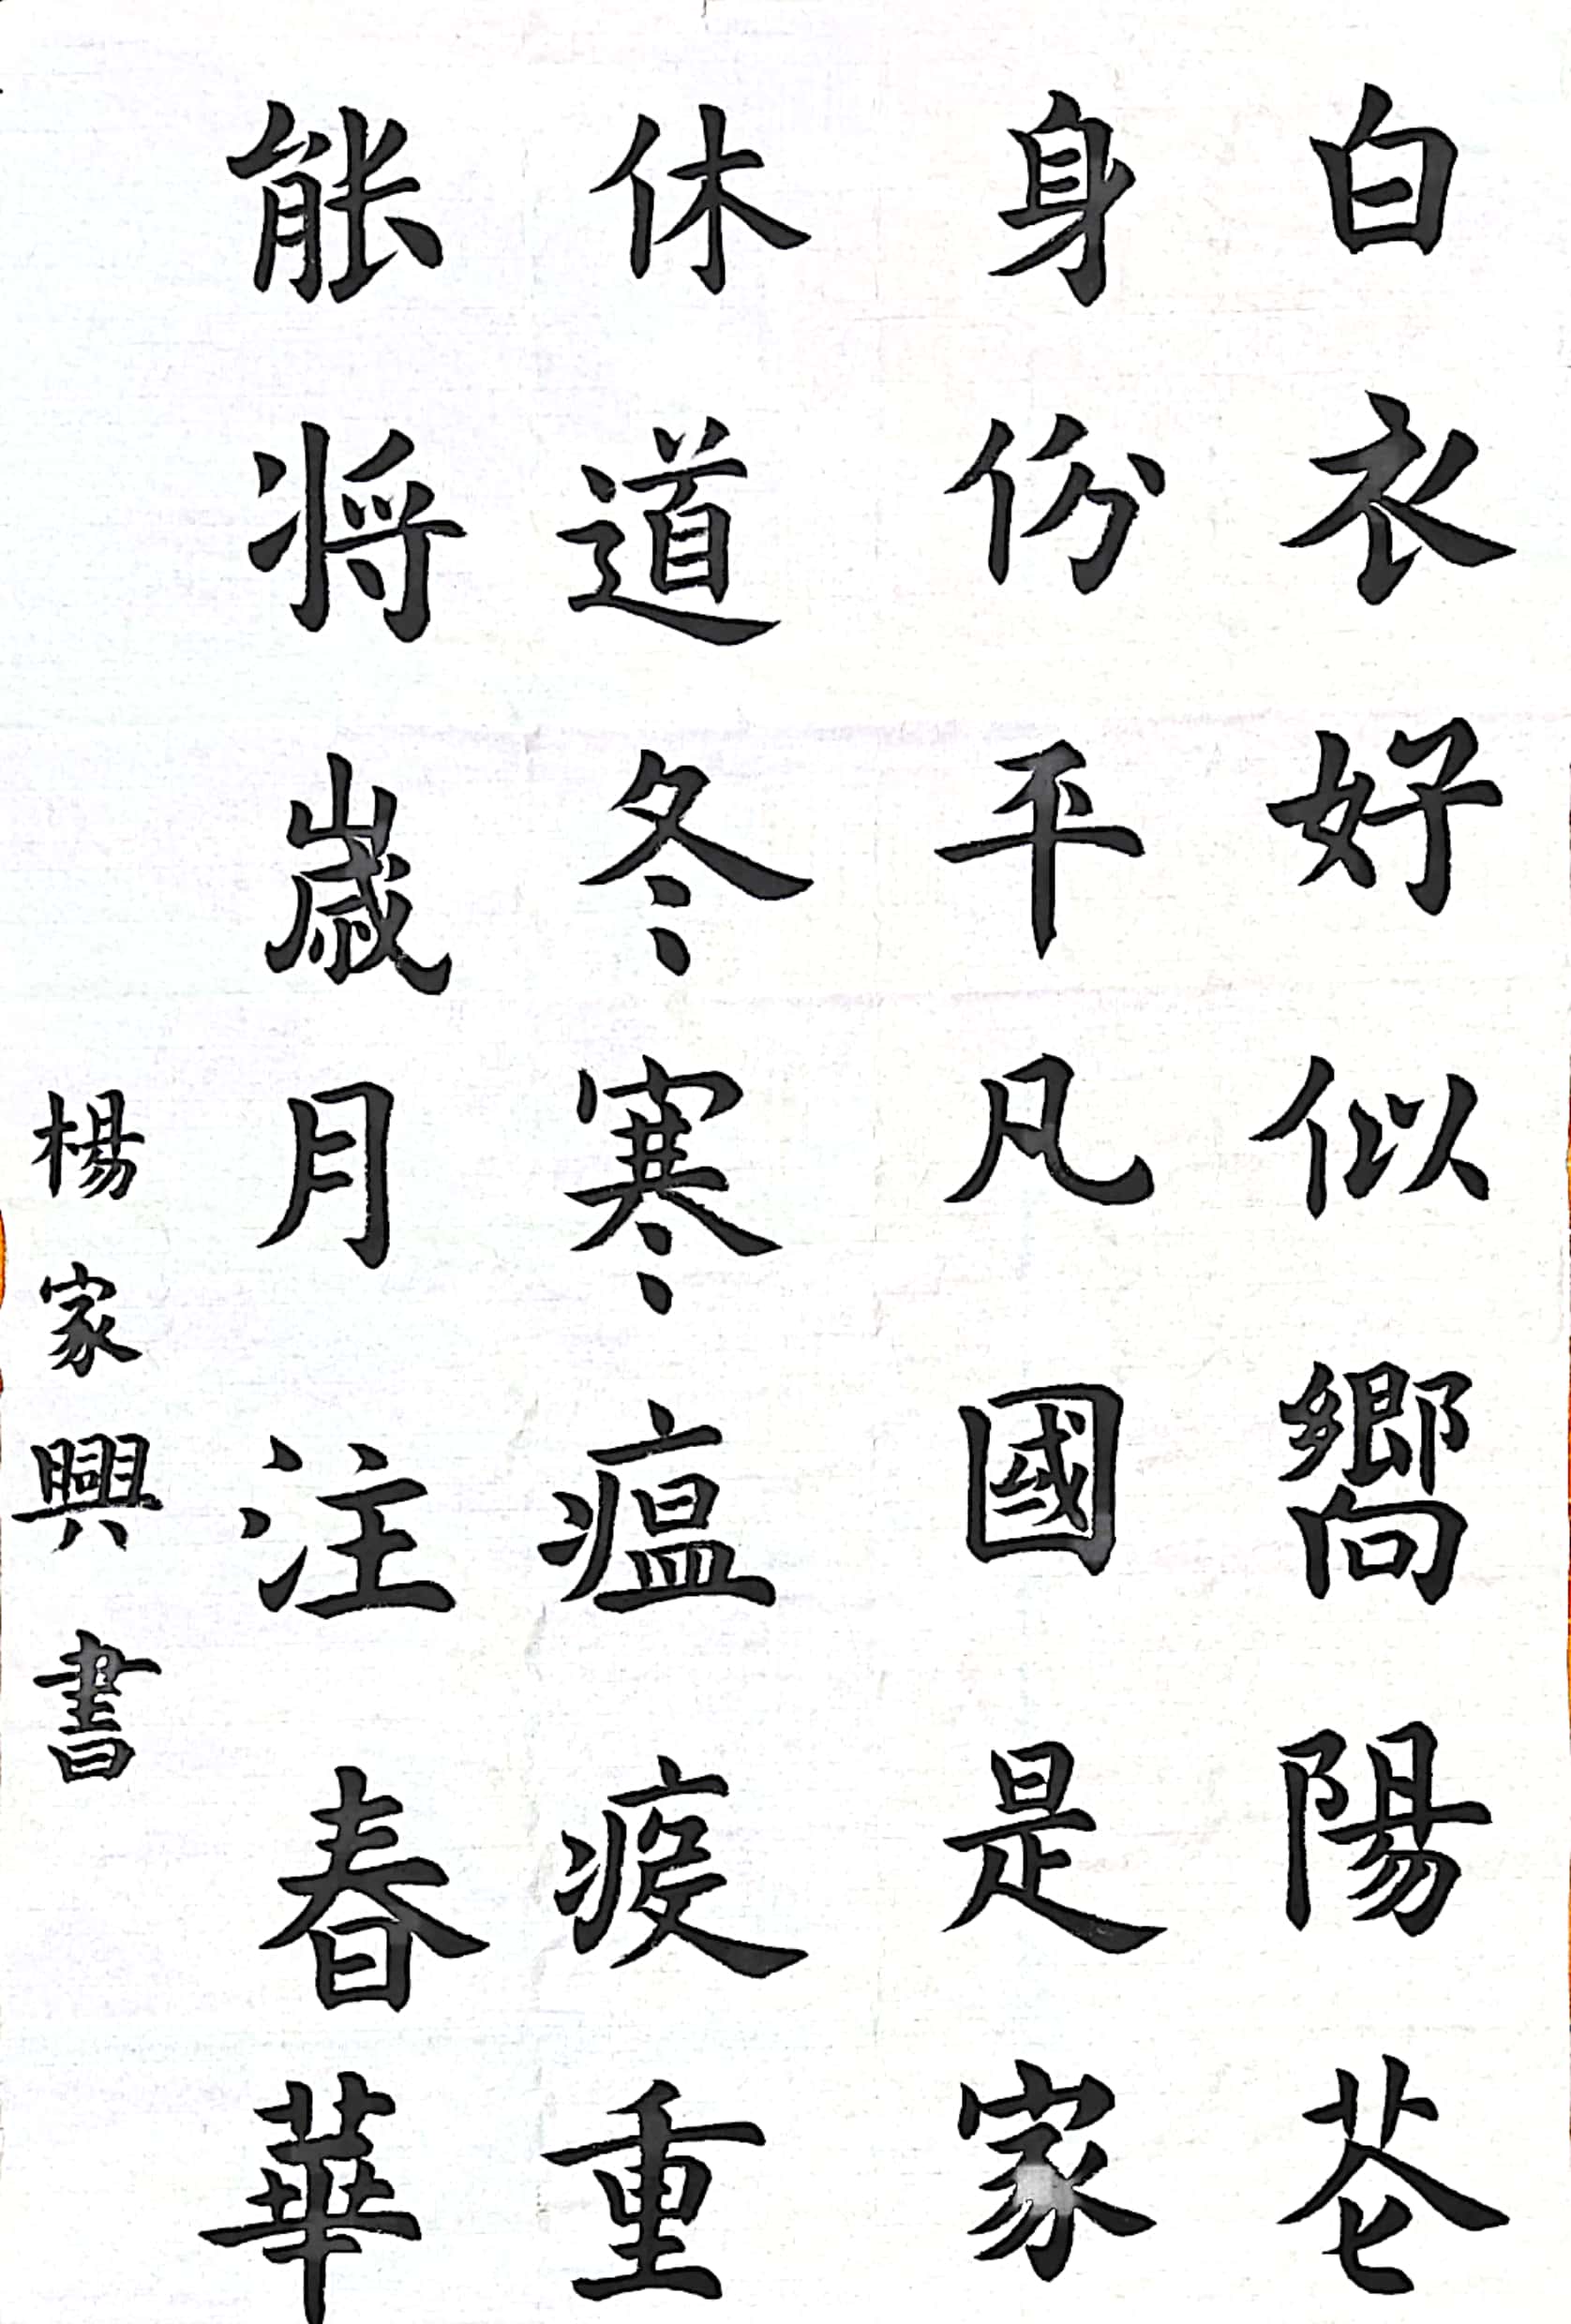 白衣好似嚮陽苍
身份平凡國是家
休道冬寒瘟疫重
能将歲月注春華
楊家興書